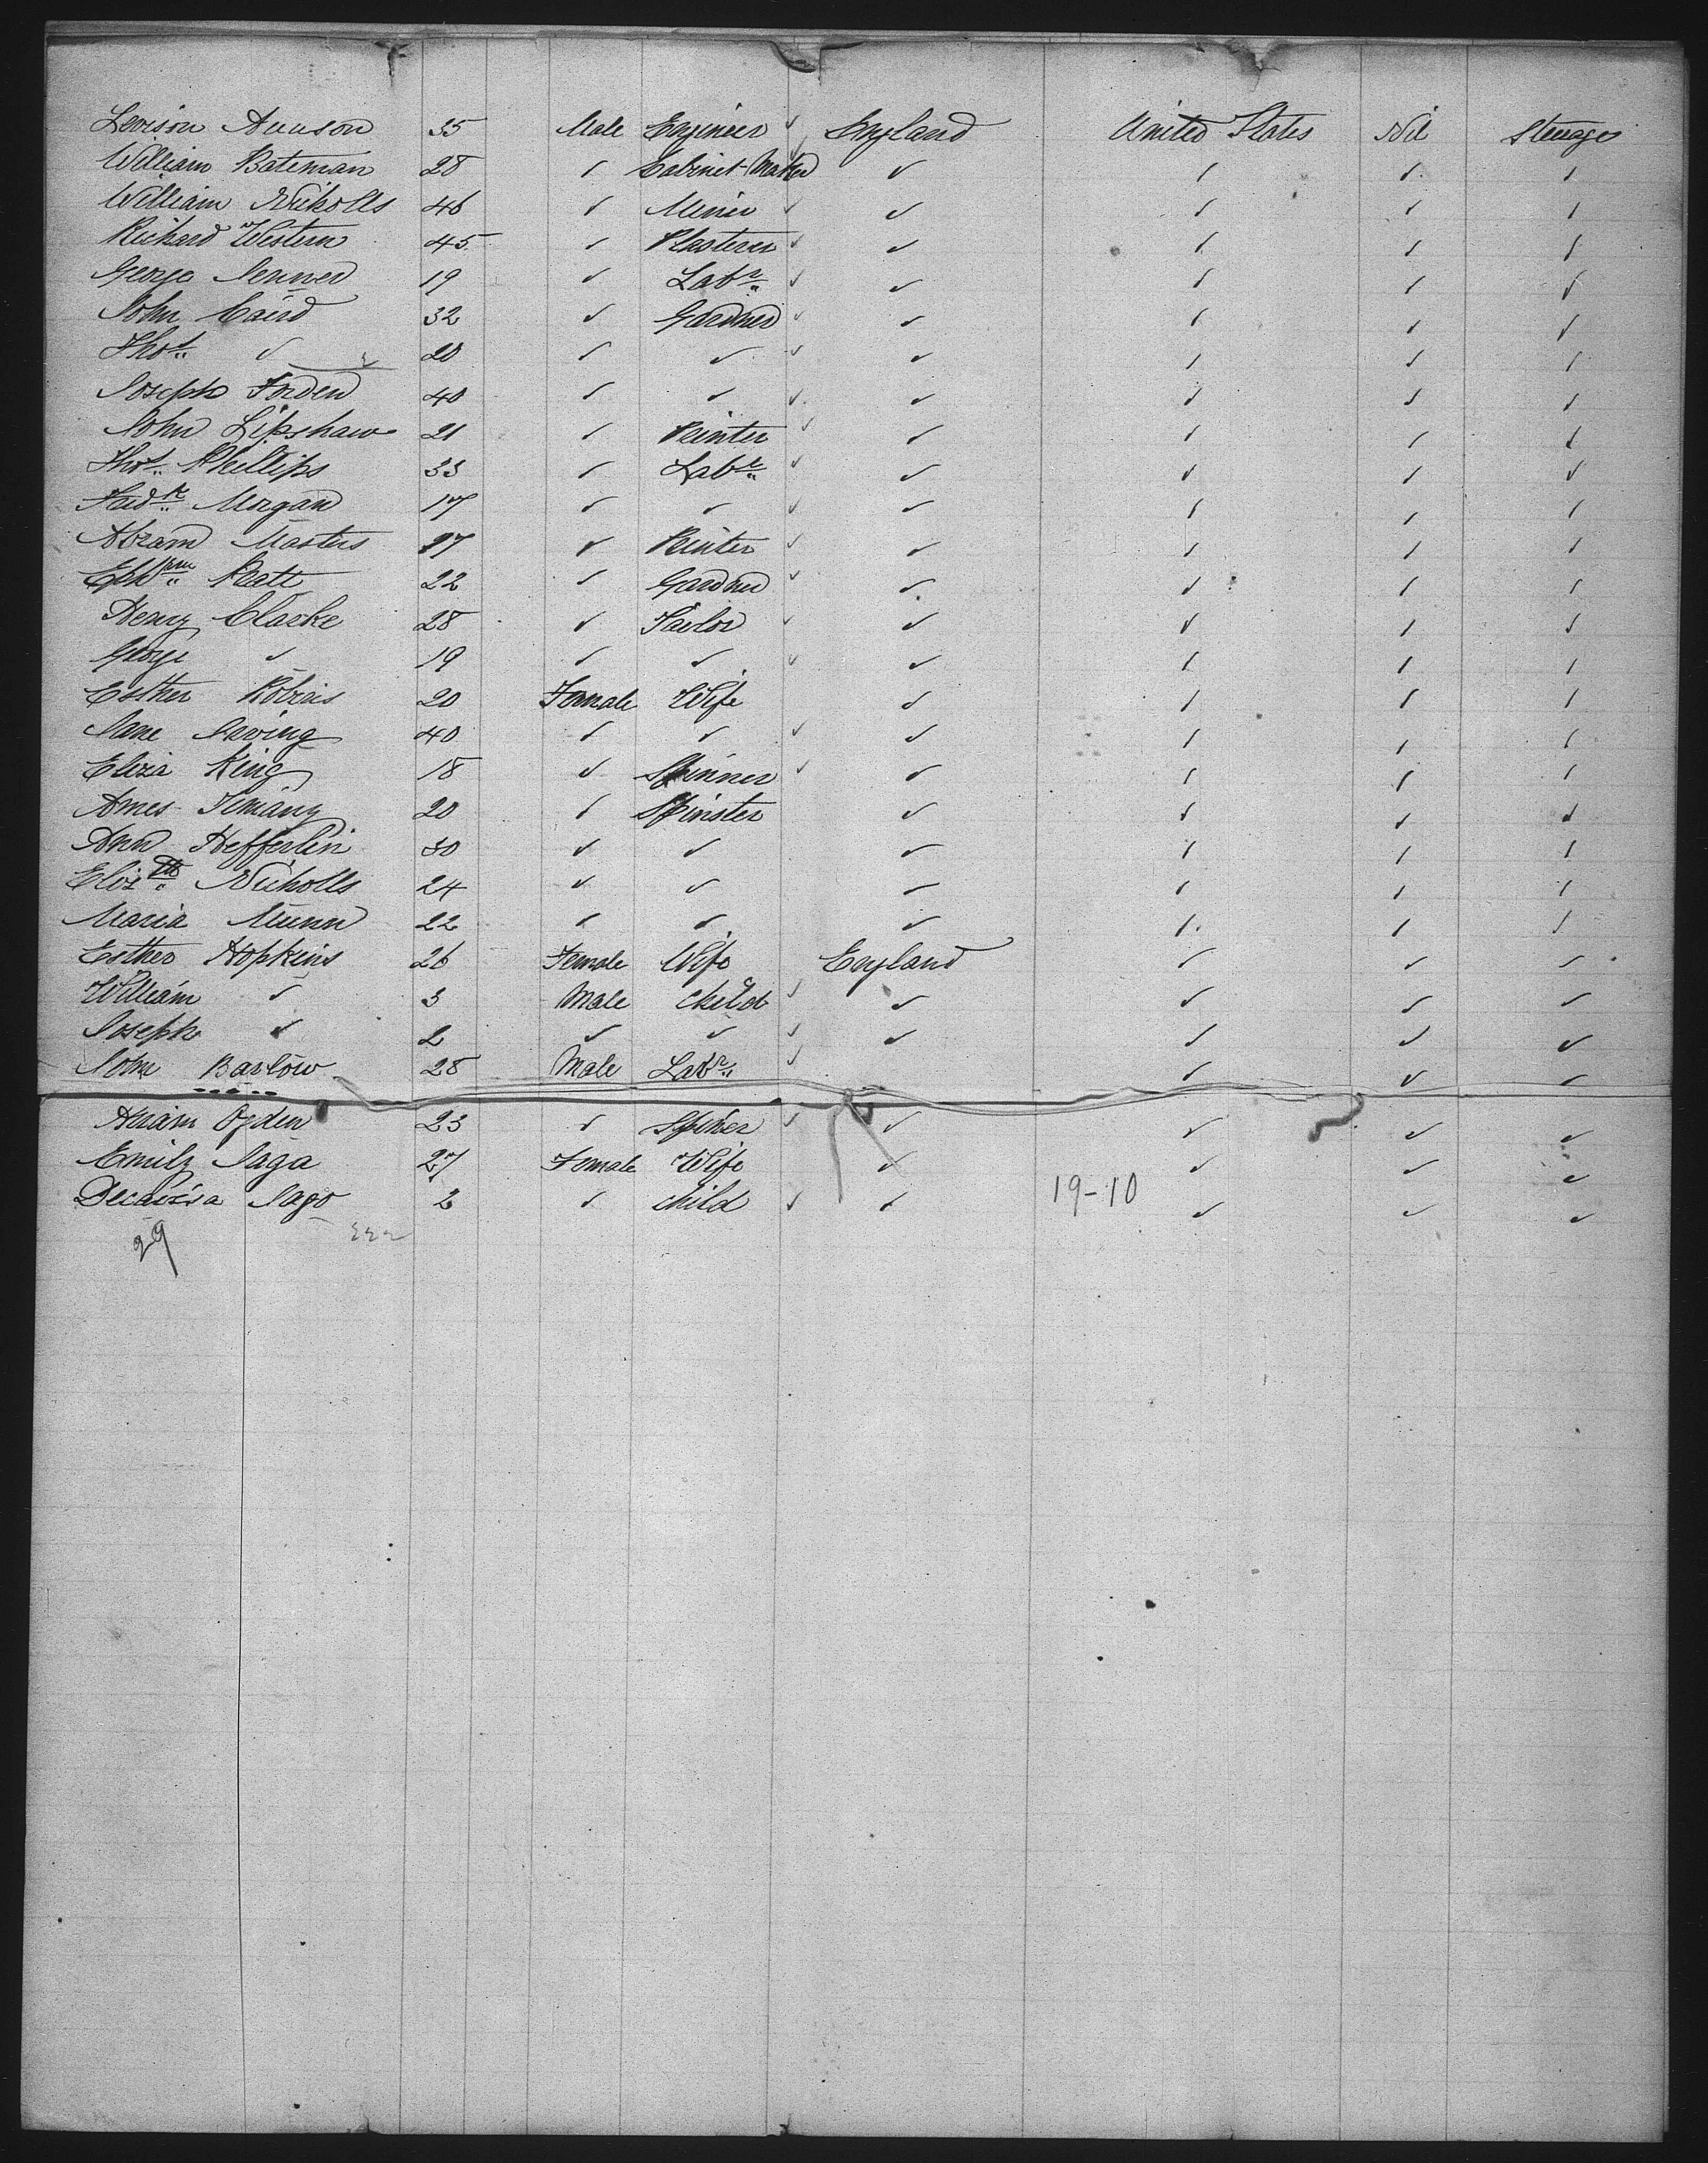 Levison Aunson 35 Male Engineer ✓ England United States Nil Steerage
William Bateman 28 ✓ Cabinet Maker ✓ ✓ ✓ ✓
William Nicholls 46 ✓ Miner ✓ ✓ ✓ ✓ ✓
Richard Western 45 ✓ Plasterer ✓ ✓ ✓ ✓ ✓
George Jenner 19 ✓ Labr ✓ ✓ ✓ ✓ ✓
John Caird 32 ✓ Gardner ✓ ✓ ✓ ✓ ✓
Thos ✓ 20 ✓ ✓ ✓ ✓ ✓ ✓ ✓
Joseph Forden 40 ✓ ✓ ✓ ✓ ✓ ✓ ✓
John Lipshaw 21 ✓ Printer ✓ ✓ ✓ ✓ ✓
Thos Phillips 33 ✓ Labr ✓ ✓ ✓ ✓ ✓
Fredk Morgan 17 ✓ ✓ ✓ ✓ ✓ ✓ ✓
Abram Masters 27 ✓ Printer ✓ ✓ ✓ ✓ ✓
Ephrm Platt 22 ✓ Gardner ✓ ✓ ✓ ✓ ✓
Henry Clarke 28 ✓ Tailor ✓ ✓ ✓ ✓ ✓
George ✓ 19 ✓ ✓ ✓ ✓ ✓ ✓ ✓
Esther 20 Female Wife ✓ ✓ ✓ ✓
Jane Irving 40 ✓ ✓ ✓ ✓ ✓ ✓ ✓
Eliza King 18 ✓ Spinner ✓ ✓ ✓ ✓ ✓
Ames 20 ✓ Spinster ✓ ✓ ✓ ✓
Ann Hefferlin 30 ✓ ✓ ✓ ✓ ✓ ✓
Elizth Nicholls 24 ✓ ✓ ✓ ✓ ✓ ✓
Maria Munn 22 ✓ ✓ ✓ ✓ ✓ ✓
Esther Hopkins 26 Female Wife England ✓ ✓ ✓
William ✓ 3 Male Child ✓ ✓ ✓ ✓ ✓
Joseph ✓ 2 ✓ ✓ ✓ ✓ ✓ ✓ ✓
John Barlow 28 Male Labr ✓ ✓ ✓ ✓
Hiram Ogden 23 ✓ ✓ ✓ ✓ ✓ ✓
Emily Jaga 27 Female Wife ✓ ✓ ✓ ✓
Jago 2 ✓ Child ✓ ✓ 19-10 ✓ ✓ ✓
29